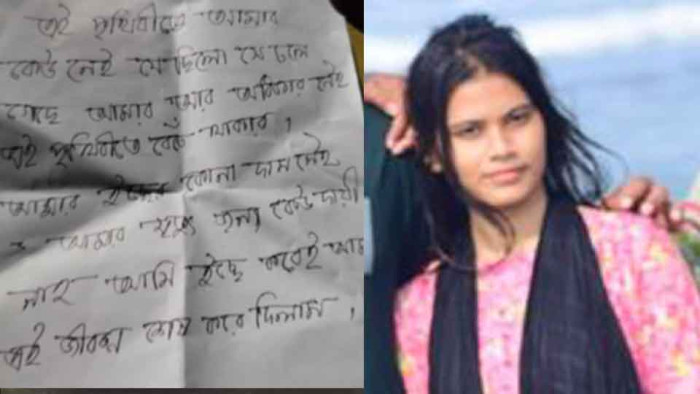 এই পৃথিবীতে আমার
কেউ নেই যে ছিলো সে চলে
গেছে আমার আর অধিকার নেই
এই পৃথিবীতে বেঁচে থাকার।
আমার ইচ্ছের কোনো দাম নেই
আমার মৃত্যুর জন্য কেউ দায়ী
নাহ আমি ইচ্ছে করেই আমা
এই জীবন শেষ করে দিলাম।